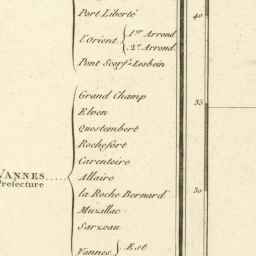 Port Liberté
l'Orient { 1er Arrond
2e Arrond
Pont Scorff-Lesbein
Grand Champ
Elven
Questembert
Rochefort
Carentoire
Allaire
la Roche Bernard
Muzillac
Sarzeau
Vannes } Est
VANNES
Prefecture
40
35
30